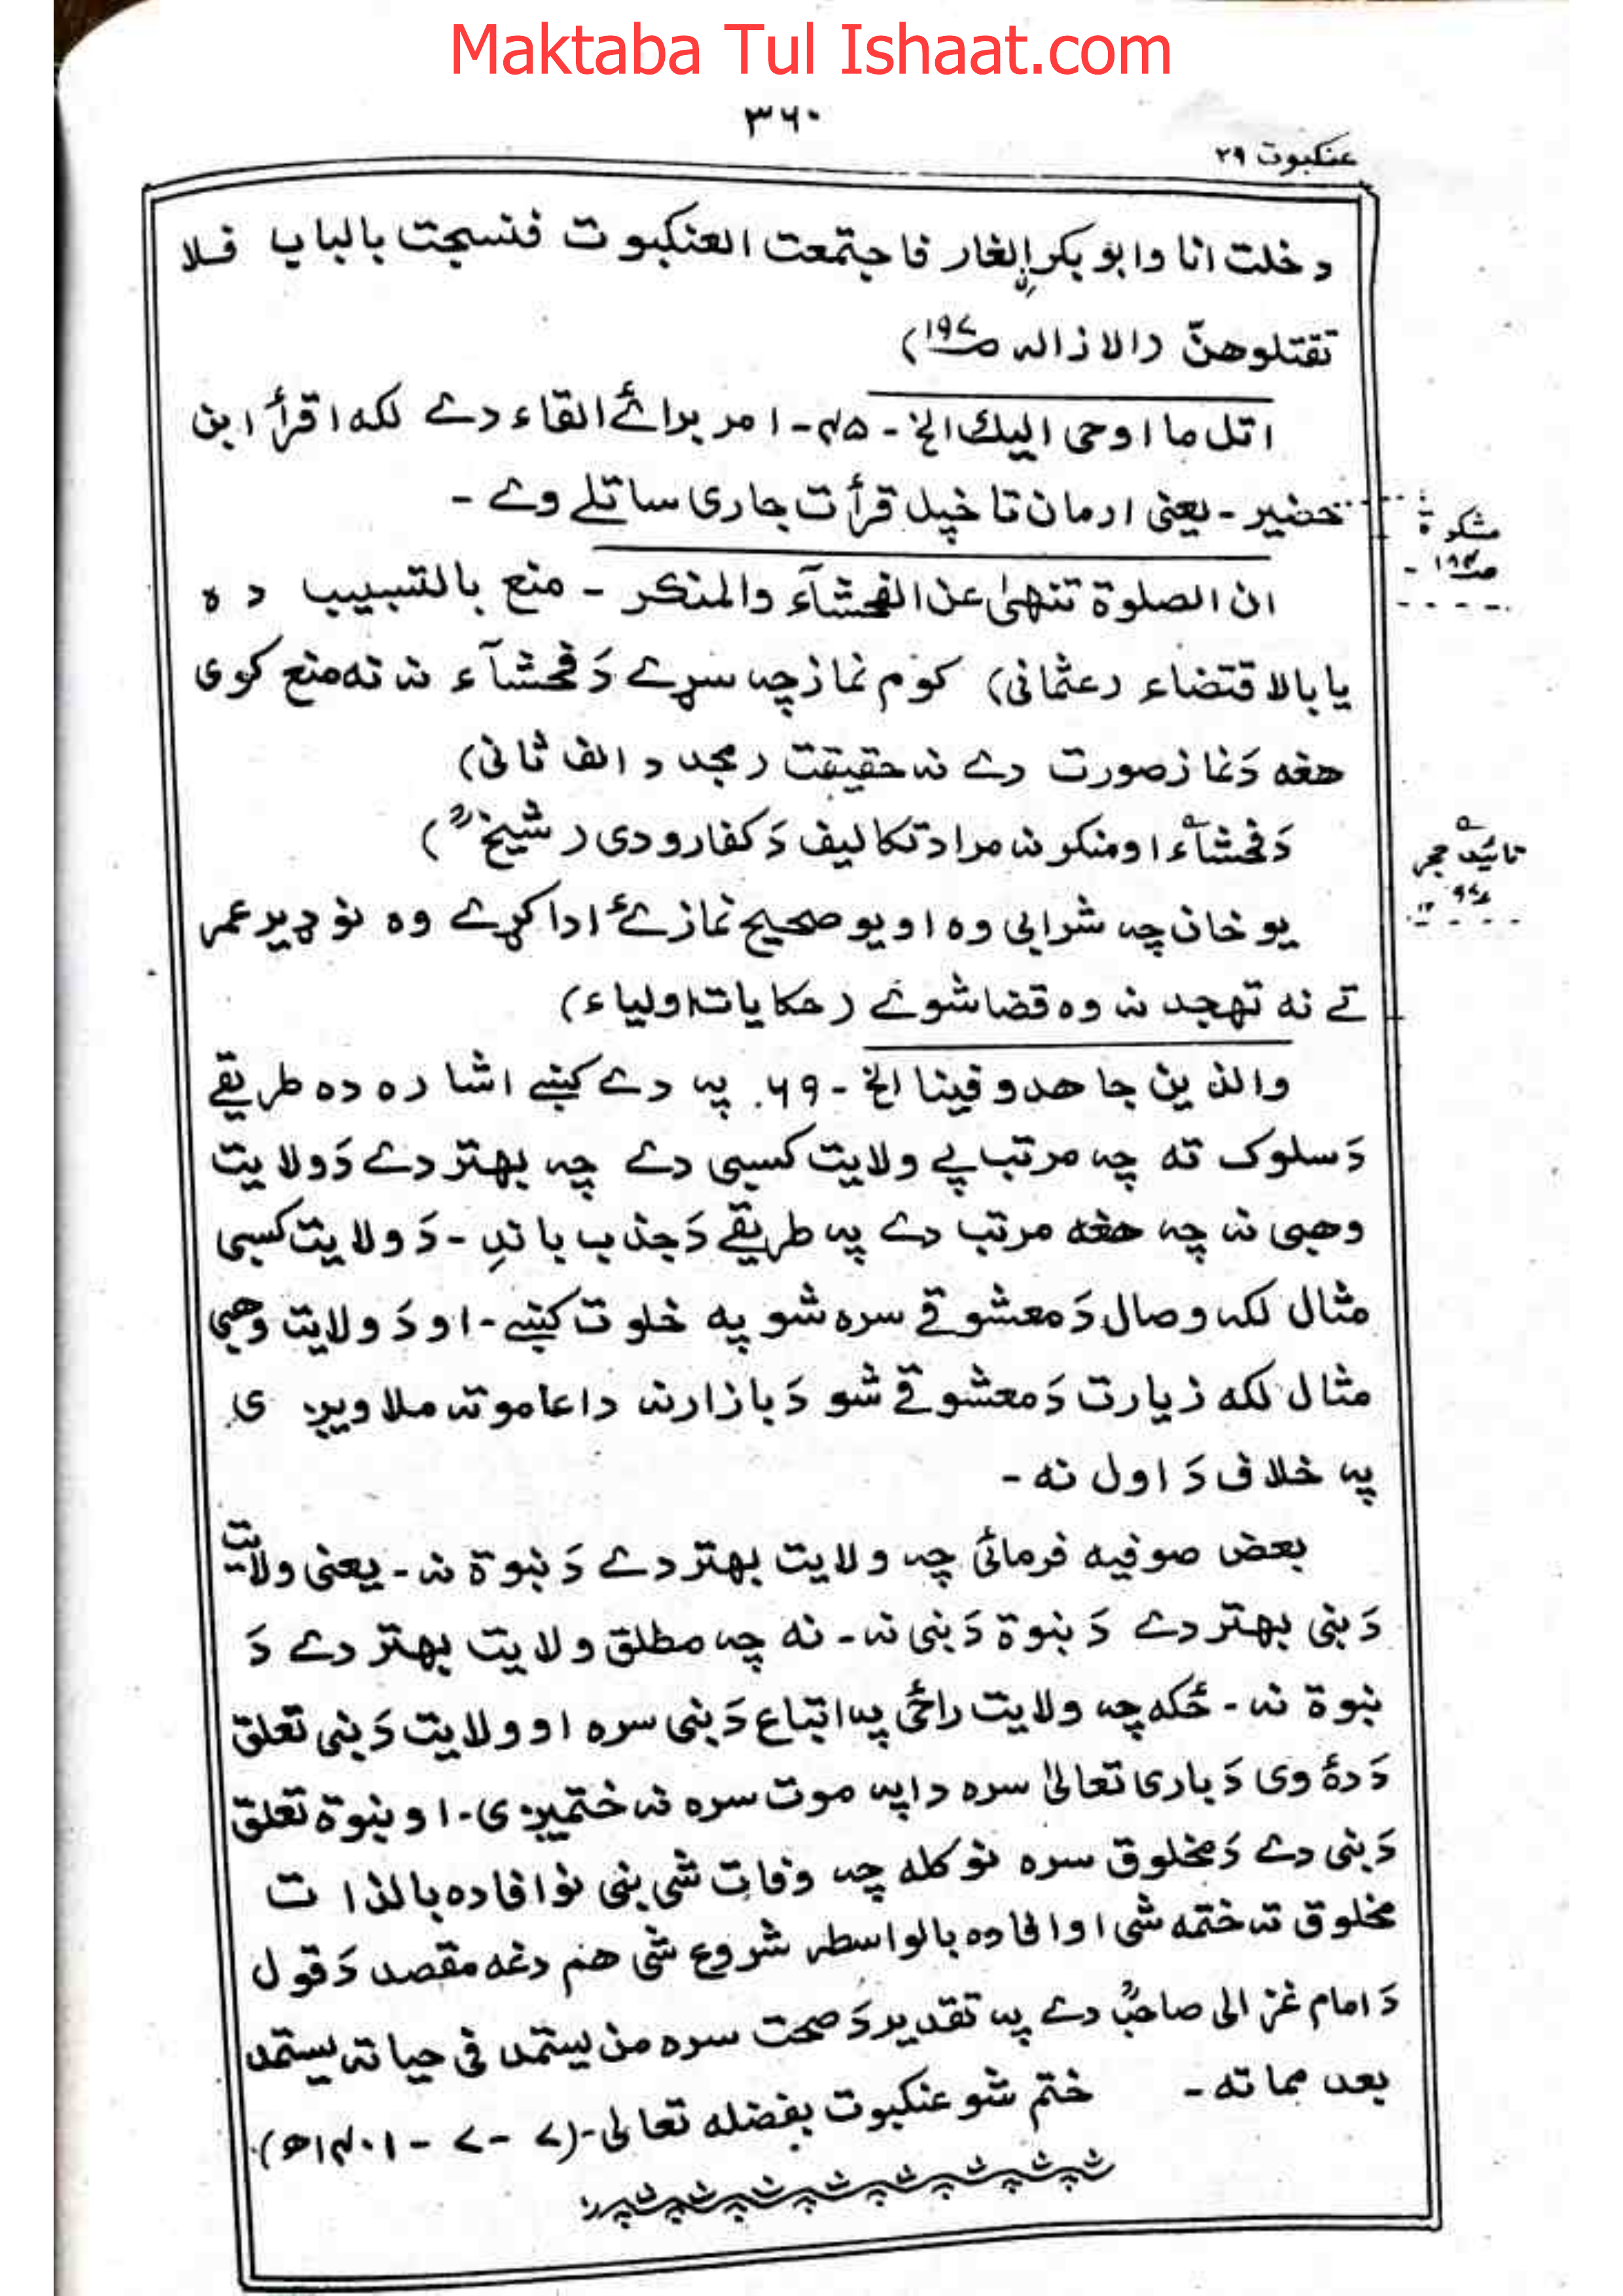 Maktaba Tul Ishaat.com
۳۶۰
عنکبوت ۲۹
دخلت انا وابوبکر الغار فاجتمعت العنکبوت فنسجت بالباب فلا
تقتلوهنّ (الازالہ ص۱۹۷)
اتل ما اوحی الیك الخ - ۴۵ - امر برائے القاء دے لکه اقرأ ابن
حضیر - یعنی ارمان تا خپل قرأت جاری ساتلے وے -
مشکوٰة
ص۱۹۴ -
ان الصلوة تنهیٰ عن الفحشآء والمنکر - منع بالتسبیب ده
یا بالاقتضاء (عثمانی) کوم نماز چہ سړے دَ فحشآء نہ نه منع کوی
هغه دَ نماز صورت دے نہ حقیقت (مجدد الف ثانی)
دَ فحشآء او منکر نہ مراد تکالیف دَ کفارو دی (شیخؒ)
تائید حجر
یو خان چہ شرابی وه او یو صحیح نماز ئے ادا کړے وه نو ډیر عمر
تے نه تهجد نہ وه قضا شوے (حکایات اولیاء)
والذین جاهدو فینا الخ - ۶۹. پہ دے کښے اشاره ده طریقے
دَ سلوک ته چہ مرتب پے ولایت کسبی دے چہ بهتر دے دَ ولایت
وهبی نہ چہ هغه مرتب دے پہ طریقے دَ جذب باندِ - دَ ولایت کسبی
مثال لکہ وصال دَ معشوقے سره شو په خلوت کښے - او دَ ولایت وهبی
مثال لکه زیارت دَ معشوقے شو دَ بازار نہ دا عامو تہ ملاویږی
پہ خلاف دَ اول نه -
بعض صوفیه فرمائی چہ ولایت بهتر دے دَ نبوة نہ - یعنی ولایت
دَ نبی بهتر دے دَ نبوة دَ نبی نہ - نه چہ مطلق ولایت بهتر دے دَ
نبوة نہ - ځکه چہ ولایت راځی پہ اتباع دَ نبی سره او ولایت دَ نبی تعلق
دَ دۀ وی دَ باری تعالیٰ سره دا پہ موت سره نہ ختمیږی - او نبوة تعلق
دَ نبی دے دَ مخلوق سره نو کله چہ وفات شی نبی نو افاده بالذات
مخلوق تہ ختمه شی او افاده بالواسطہ شروع شی هم دغه مقصد دَ قول
دَ امام غزالی صاحبؒ دے پہ تقدیر دَ صحت سره من یستمد فی حیاته یستمد
بعد مماته - ختم شو عنکبوت بفضله تعالی - (۷ - ۷ - ۱۴۰۱ھ)